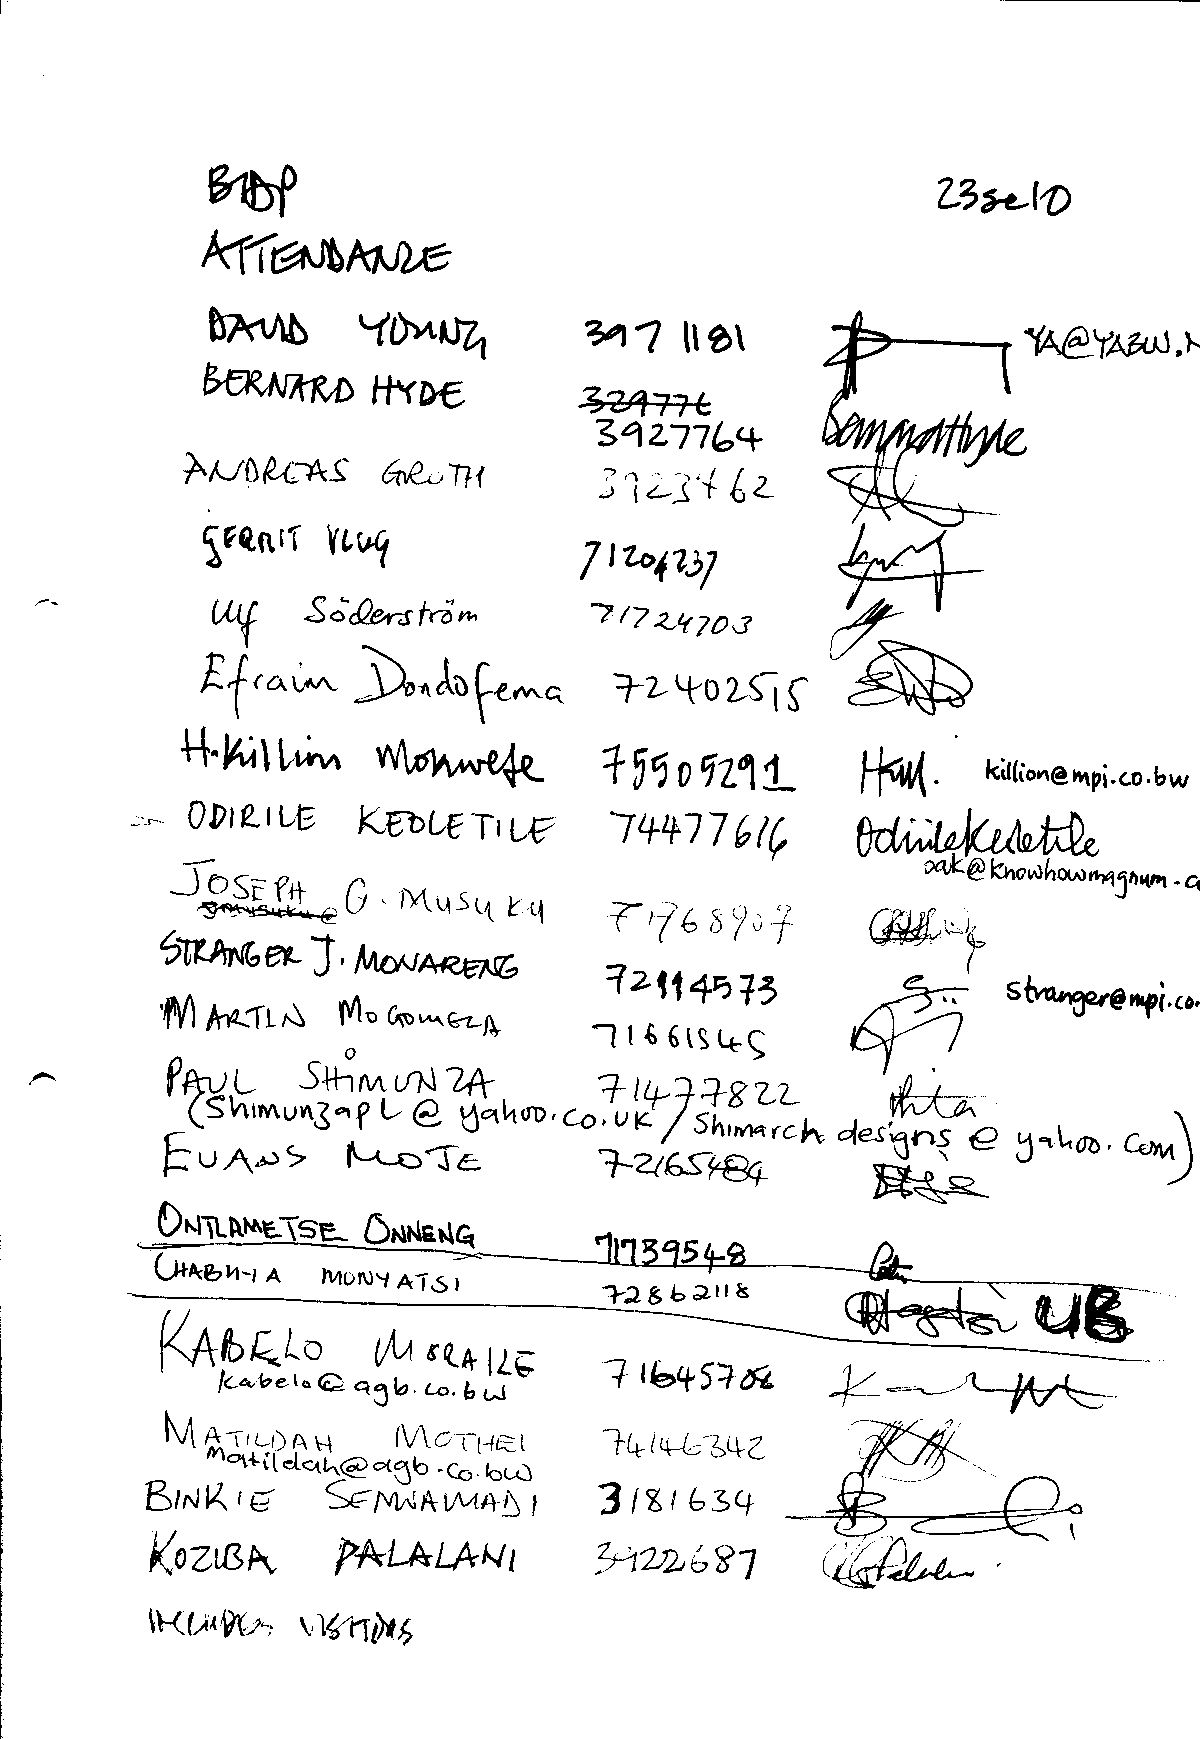 23se10
ATTENDANCE
DAVID YOUNG 397 1181 YA@YABW.N
BERNARD HYDE 329776
3927764 BernardHyde
ANDREAS GROTH 3923462
GERRIT VLUG 71204237
Ulf Söderström 71724703
Efraim Dondofema 72402515
H.Killion Mokwete 75505291 HKM. killion@mpi.co.bw
ODIRILE KEOLETILE 74477616 OdirileKeoletile
oak@knowhowmagnum.c
JOSEPH G. MUSUKU 71768907
STRANGER J. MONARENG 72114573 stranger@mpi.co.
MARTIN MOGOMEZA 71661545
PAUL SHIMUNZA 71477822
(Shimunzapl@yahoo.co.uk / Shimarch designs@yahoo.com)
EVANS MOJE 72165484
ONTLAMETSE ONNENG 71739548
MONYATSI 72862118 UB
KABELO MORAILE 71645708
kabelo@agb.co.bw
MATILDAH MOTHEI 74146342
matildah@agb.co.bw
BINKIE SEMWAMADI 3181634
KOZIBA PALALANI 3922687
INCLUDES VISITORS